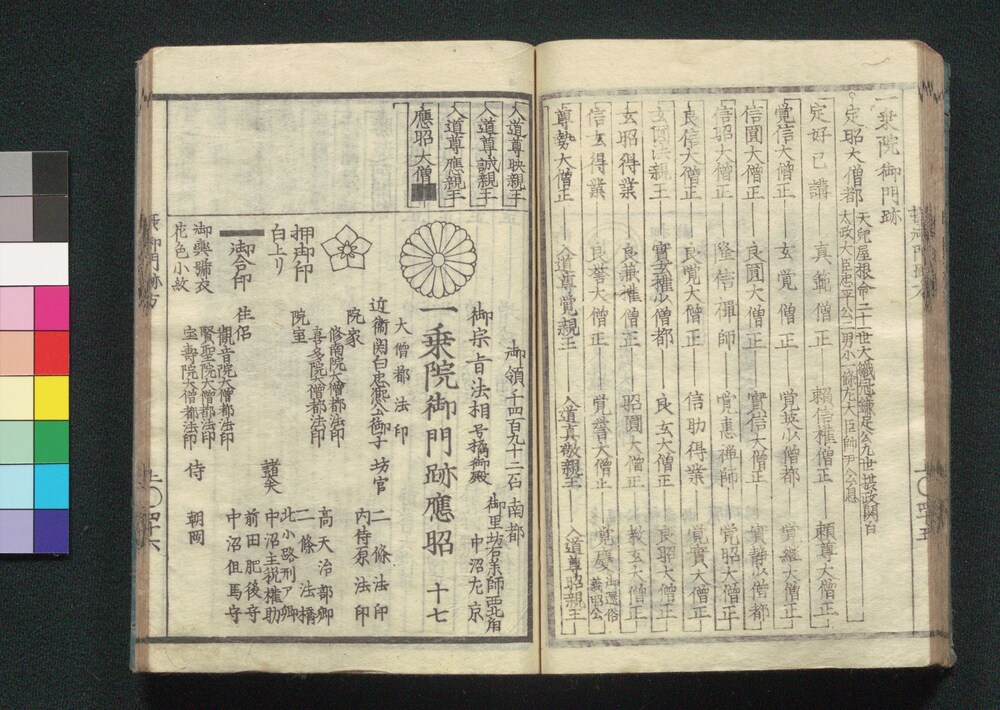 一乗院御門跡
定昭大僧都
天兒屋根命二十一世大織冠鎌足公九世摂政関白
太政大臣忠平公二男小一條左大臣師尹公息
定好已講 真範僧正 頼信権僧正 頼尊大僧正
覚信大僧正 玄覚僧正 覚英少僧都
信圓大僧正 良圓大僧正 實信大僧正
信昭大僧正 覚惠禅師 覚昭大僧正
良信大僧正 良覚大僧正 信助得業 覚實大僧正
玄圓法親王 實玄権少僧都 良玄大僧正 良昭大僧正
玄昭得業 良兼権僧正 昭圓大僧正 教玄大僧正
信玄得業 良誉大僧正 覚誉大僧正 覚慶 御還俗 義昭公
尊勢大僧正 入道尊覚親王 入道真敬親王 入道尊昭親王
入道尊映親王
入道尊誠親王
入道尊應親王
應昭大僧
御領千四百九十二石 南都
御里坊石薬師西北角
御宗旨法相号橘御殿 中沼左京
一乗院御門跡應昭 十七
大僧都法印
近衞関白忠凞公御子 坊官 二條法印
内侍原法印
院家 修南院大僧都法印
喜多院大僧都法印
院室
高天治部卿
二條法橋
諸大夫 北小路刑ア卿
中沼主税権助
前田肥後守
中沼但馬守
押御印
白上リ
御合印
住侶 觀音院大僧都法印
賢聖院大僧都法印
宝壽院大僧都法印
侍 朝岡
御輿舁衣
花色小紋
上〇四十六